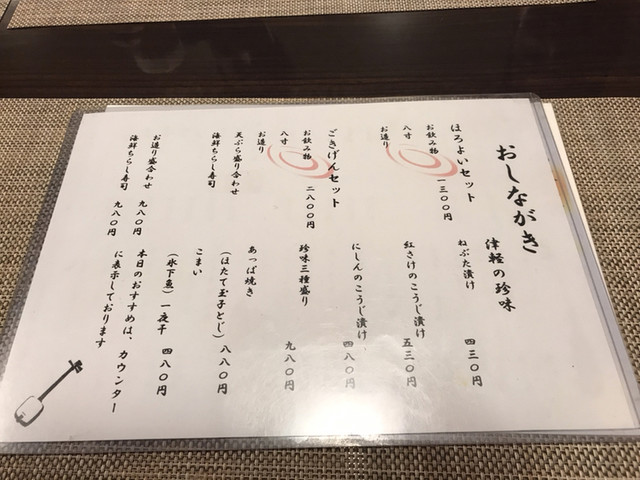 おしながき
ほろよいセット
お飲み物 一三〇〇円
八寸
お造り
ごきげんセット
お飲み物 二八〇〇円
八寸
お造り
天ぷら盛り合わせ
海鮮ちらし寿司
お造り盛合わせ 九八〇円
海鮮ちらし寿司 九八〇円
津軽の珍味
ねぶた漬け 四三〇円
紅さけのこうじ漬け 五三〇円
にしんのこうじ漬け 四八〇円
珍味三種盛り 九八〇円
あっぱ焼き
(ほたて玉子とじ) 八八〇円
こまい
(氷下魚)一夜干 四八〇円
本日のおすすめは、カウンター
に表示しております